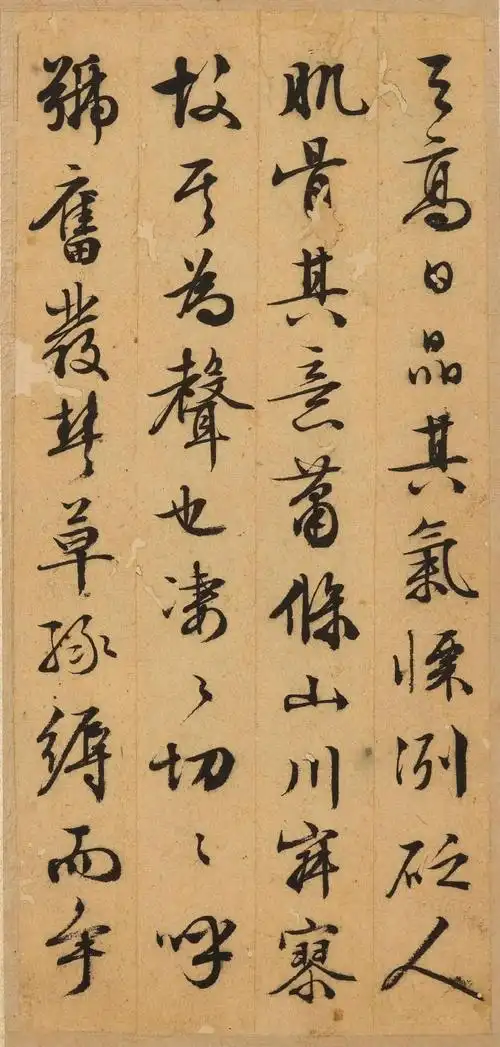 天高日晶其氣慄冽砭人
肌骨其意蕭條山川寂寥
故其為聲也凄〻切〻呼
號奮發豐草綠縟而爭